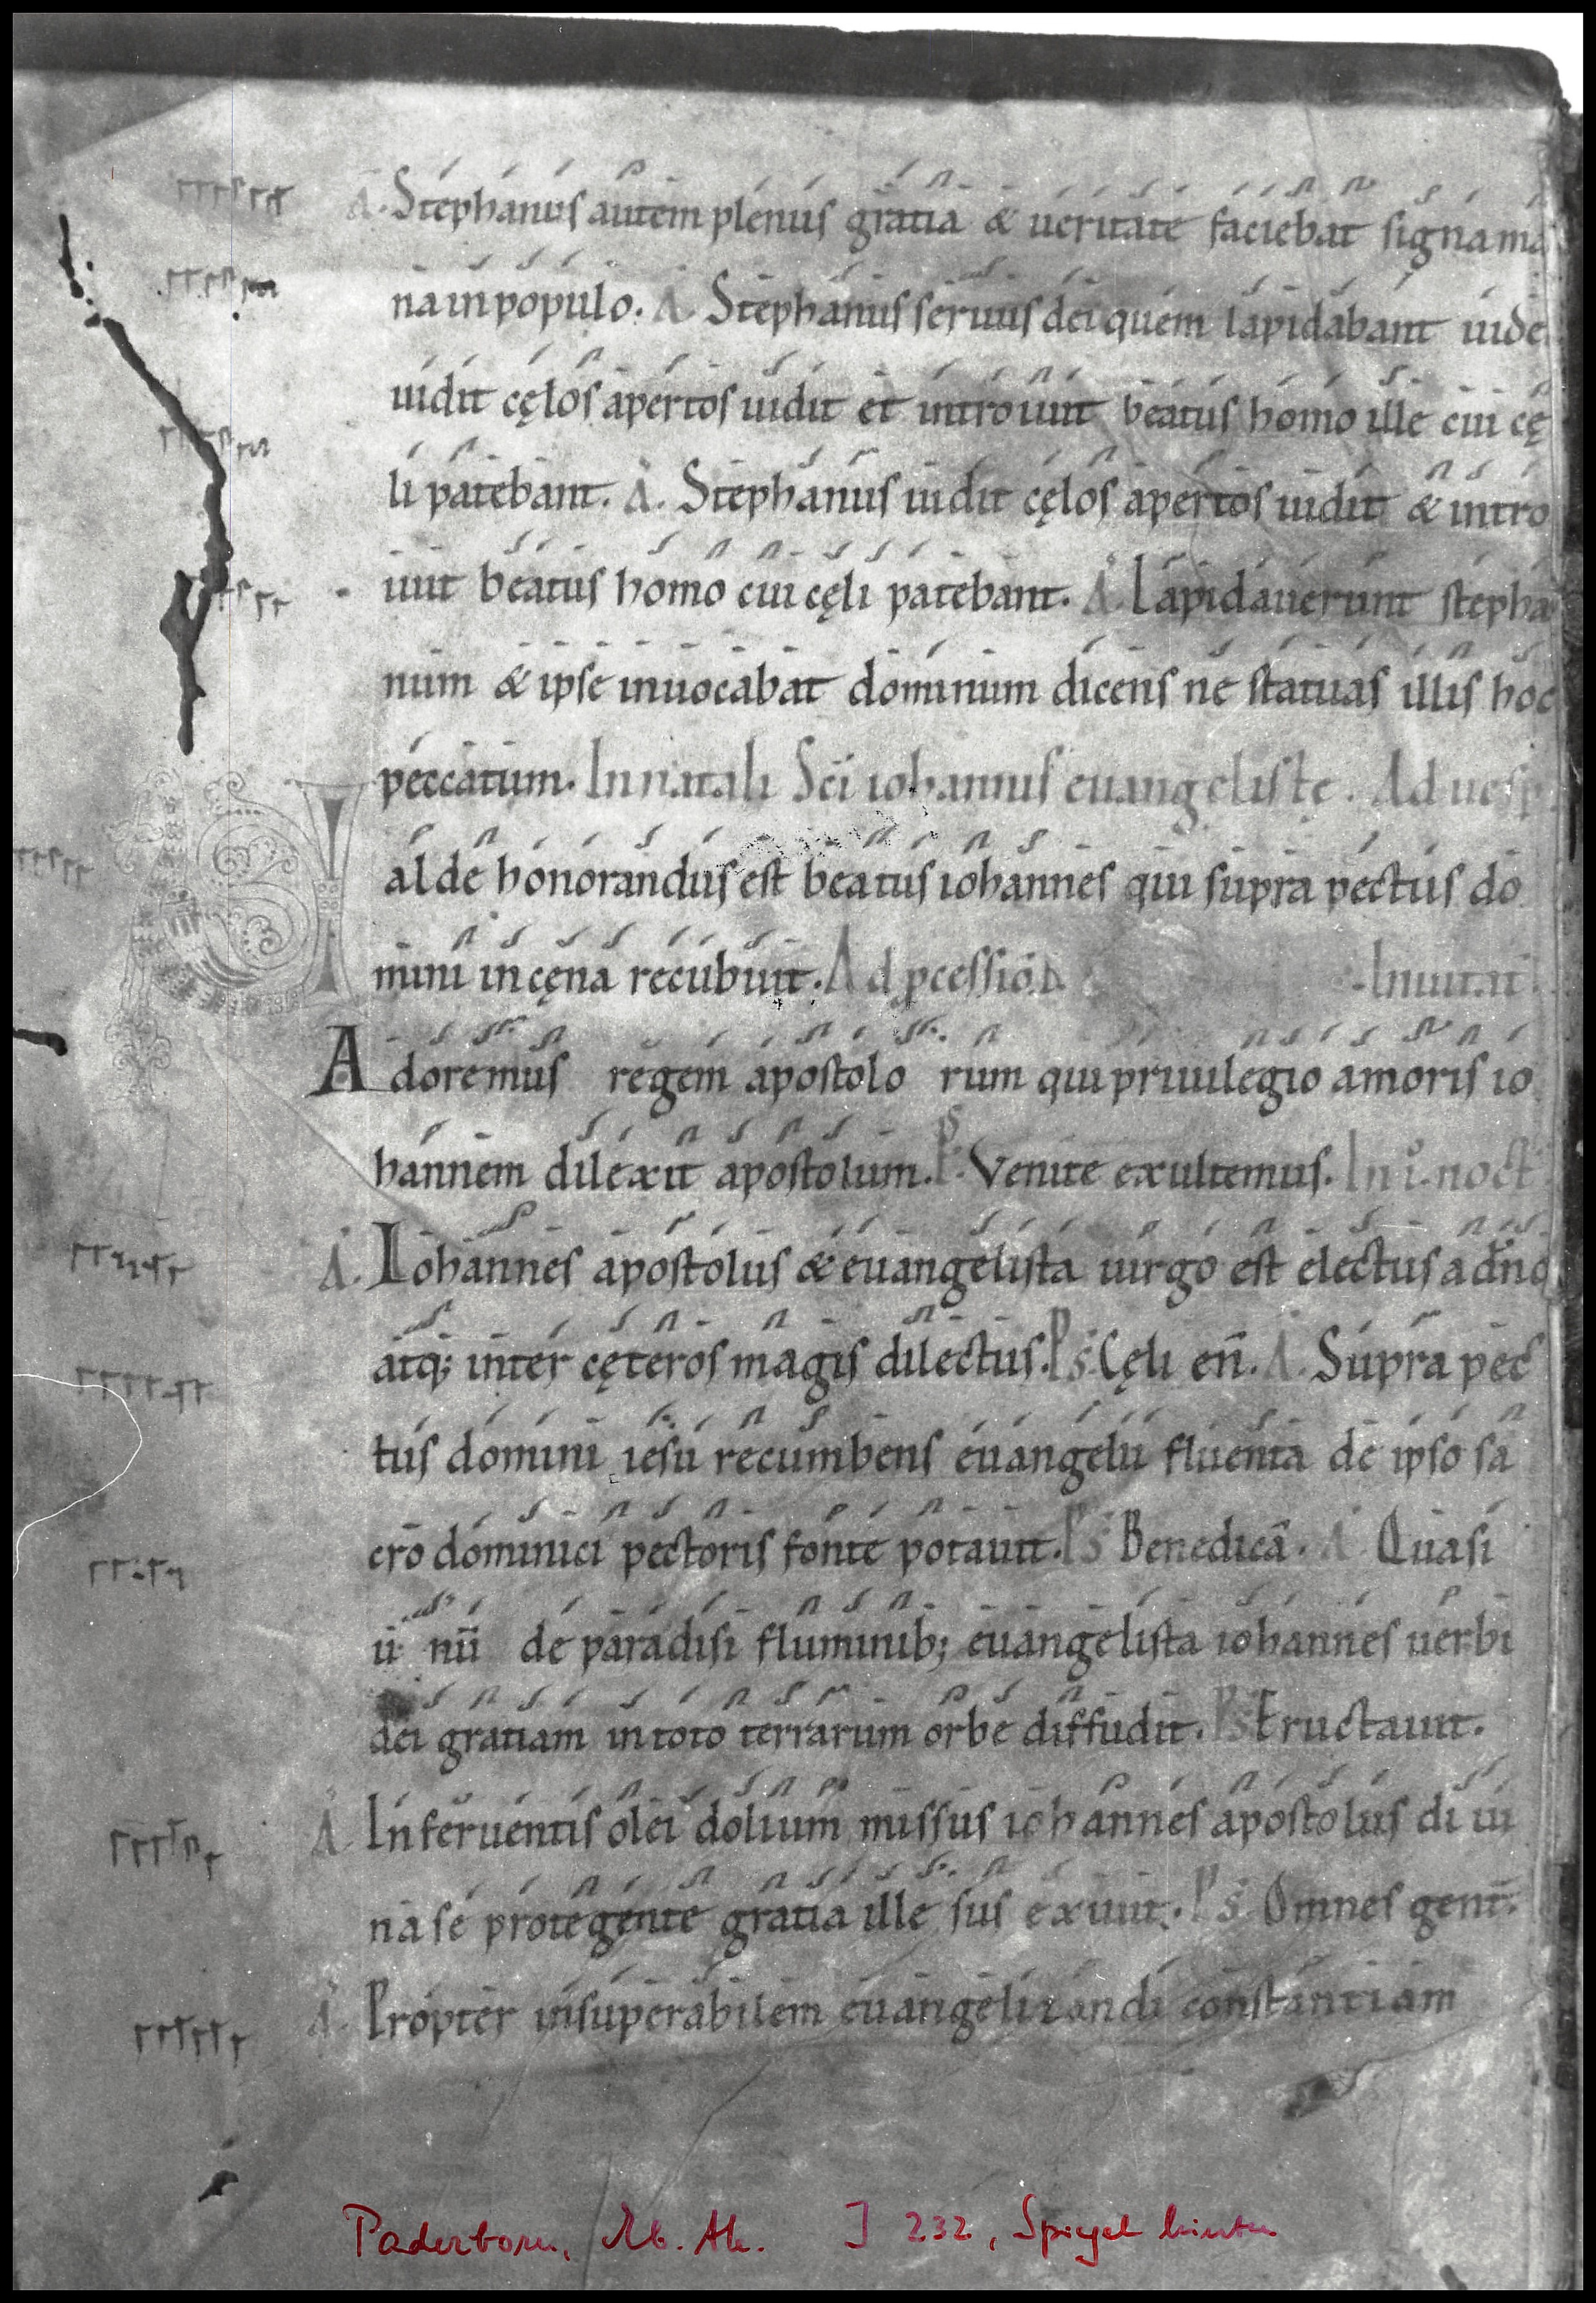 A. Stephanus autem plenus gratia & ueritate faciebat signa ma
na in populo. A. Stephanus seruus dei quem lapidabant uide
uidit cęlos apertos uidit et introiuit beatus homo ille cui cę
li patebant. A. Stephanus uidit cęlos apertos uidit & intro
iuit beatus homo cui cęli patebant. A. Lapidauerunt stepha
num & ipse inuocabat dominum dicens ne statuas illis hoc
peccatum. In natali Sc̄i iohannis euangelistę. Ad uesp
alde honorandus est beatus iohannes qui supra pectus do
mini in cęna recubuit. Ad pcessiō Inuitat
Adoremus regem apostolo rum qui priuilegio amoris io
hannem dilexit apostolum. Ps. Venite exultemus. In I. noct
A. Iohannes apostolus & euangelista uirgo est electus a dn̄o
atq; inter cęteros magis dilectus. Ps. Cęli en̄. A. Supra pec
tus domini iesu recumbens euangelii fluenta de ipso sa
cro dominici pectoris fonte potauit. Ps Benedicā. A. Quasi
u nū de paradisi fluminib; euangelista iohannes uerbi
dei gratiam in toto terrarum orbe diffudit. Ps Eructauit.
A. In feruentis olei dolium missus iohannes apostolus di ui
na se protegente gratia ille sus exiuit. Ps. Omnes gent̄.
A. Propter insuperabilem euangelizandi constantiam
Paderborn, I 232, Spiegel hinten